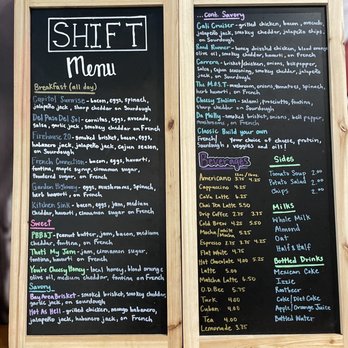 SHIFT
Menu
Breakfast (all day)
Capitol Sunrise - bacon, eggs, spinach,
jalapeño jack, sharp cheddar on Sourdough
Del Paso Del Sol - carnitas, eggs, avocado,
salsa, garlic jack, smokey cheddar on French
Firehouse 20 - smoked brisket, bacon, eggs,
habanero jack, jalapeño jack, cajun season
on Sourdough
French Connection - bacon, eggs, havarti,
fontina, maple syrup, cinnamon sugar,
powdered sugar on French
Garden Highway - eggs, mushrooms, spinach,
herb havarti on French
Kitchen Sink - bacon, eggs, jam, medium
cheddar, fontina, cinnamon sugar on French
Sweet
PBB&J - peanut butter, jam, bacon, medium
cheddar, fontina, on French
That's My Jam - jam, cinnamon sugar,
fontina, havarti on French
You're Cheesy Honey - local honey, blood orange
olive oil, medium cheddar, fontina on French
Savory
Bay Area Brisket - smoked brisket, smokey cheddar,
garlic jack, on Sourdough
Hot As Hell - grilled chicken, mango habanero,
jalapeño jack, habanero jack, on French
...cont. Savory
Cali Cruiser - grilled chicken, bacon, avocado,
jalapeño jack, smokey cheddar, jalapeño chips
on Sourdough
Road Runner - honey drizzled chicken, blood orange
olive oil, medium cheddar, havarti, on French
Carrera - brisket/chicken, onions, bell pepper,
salsa, cajun seasoning, smokey cheddar, jalapeño
jack, on Sourdough
The M.O.S.T - mushroom, onions, tomatoes, spinach,
herb havarti on French
Cheesy Italian - salami, prosciutto, fontina,
sharp cheddar on Sourdough
Da Philly - smoked brisket, onions, bell pepper,
mushrooms, on French
Classic Build your own
French/ Your choice of cheese, protein,
Sourdough & veggies and oil!
Beverages
Americano 2.75 4.25
Cappuccino 4.25
Café Latte 5.25
Chai Tea Latte 5.50
Drip Coffee 2.75 3.75
Cold Brew 4.25 5.50
Mocha/white Mocha 5.25
Espresso 2.75 3.75
Flat White 4.75
Hot Chocolate 4.00 5.25
Latte 5.00
Matcha Latte 5.50
O.D. Bee 5.75
Turk 4.00
Cuban 4.00
Tea 4.00
Lemonade 3.75
Sides
Tomato Soup
Potato Salad
Chips
Milks
Whole Milk
Almond
Oat
Half & Half
Bottled Drinks
Mexican Coke
Izzie
Rootbeer
Coke/Diet Coke
Apple/Orange Juice
Bottled Water